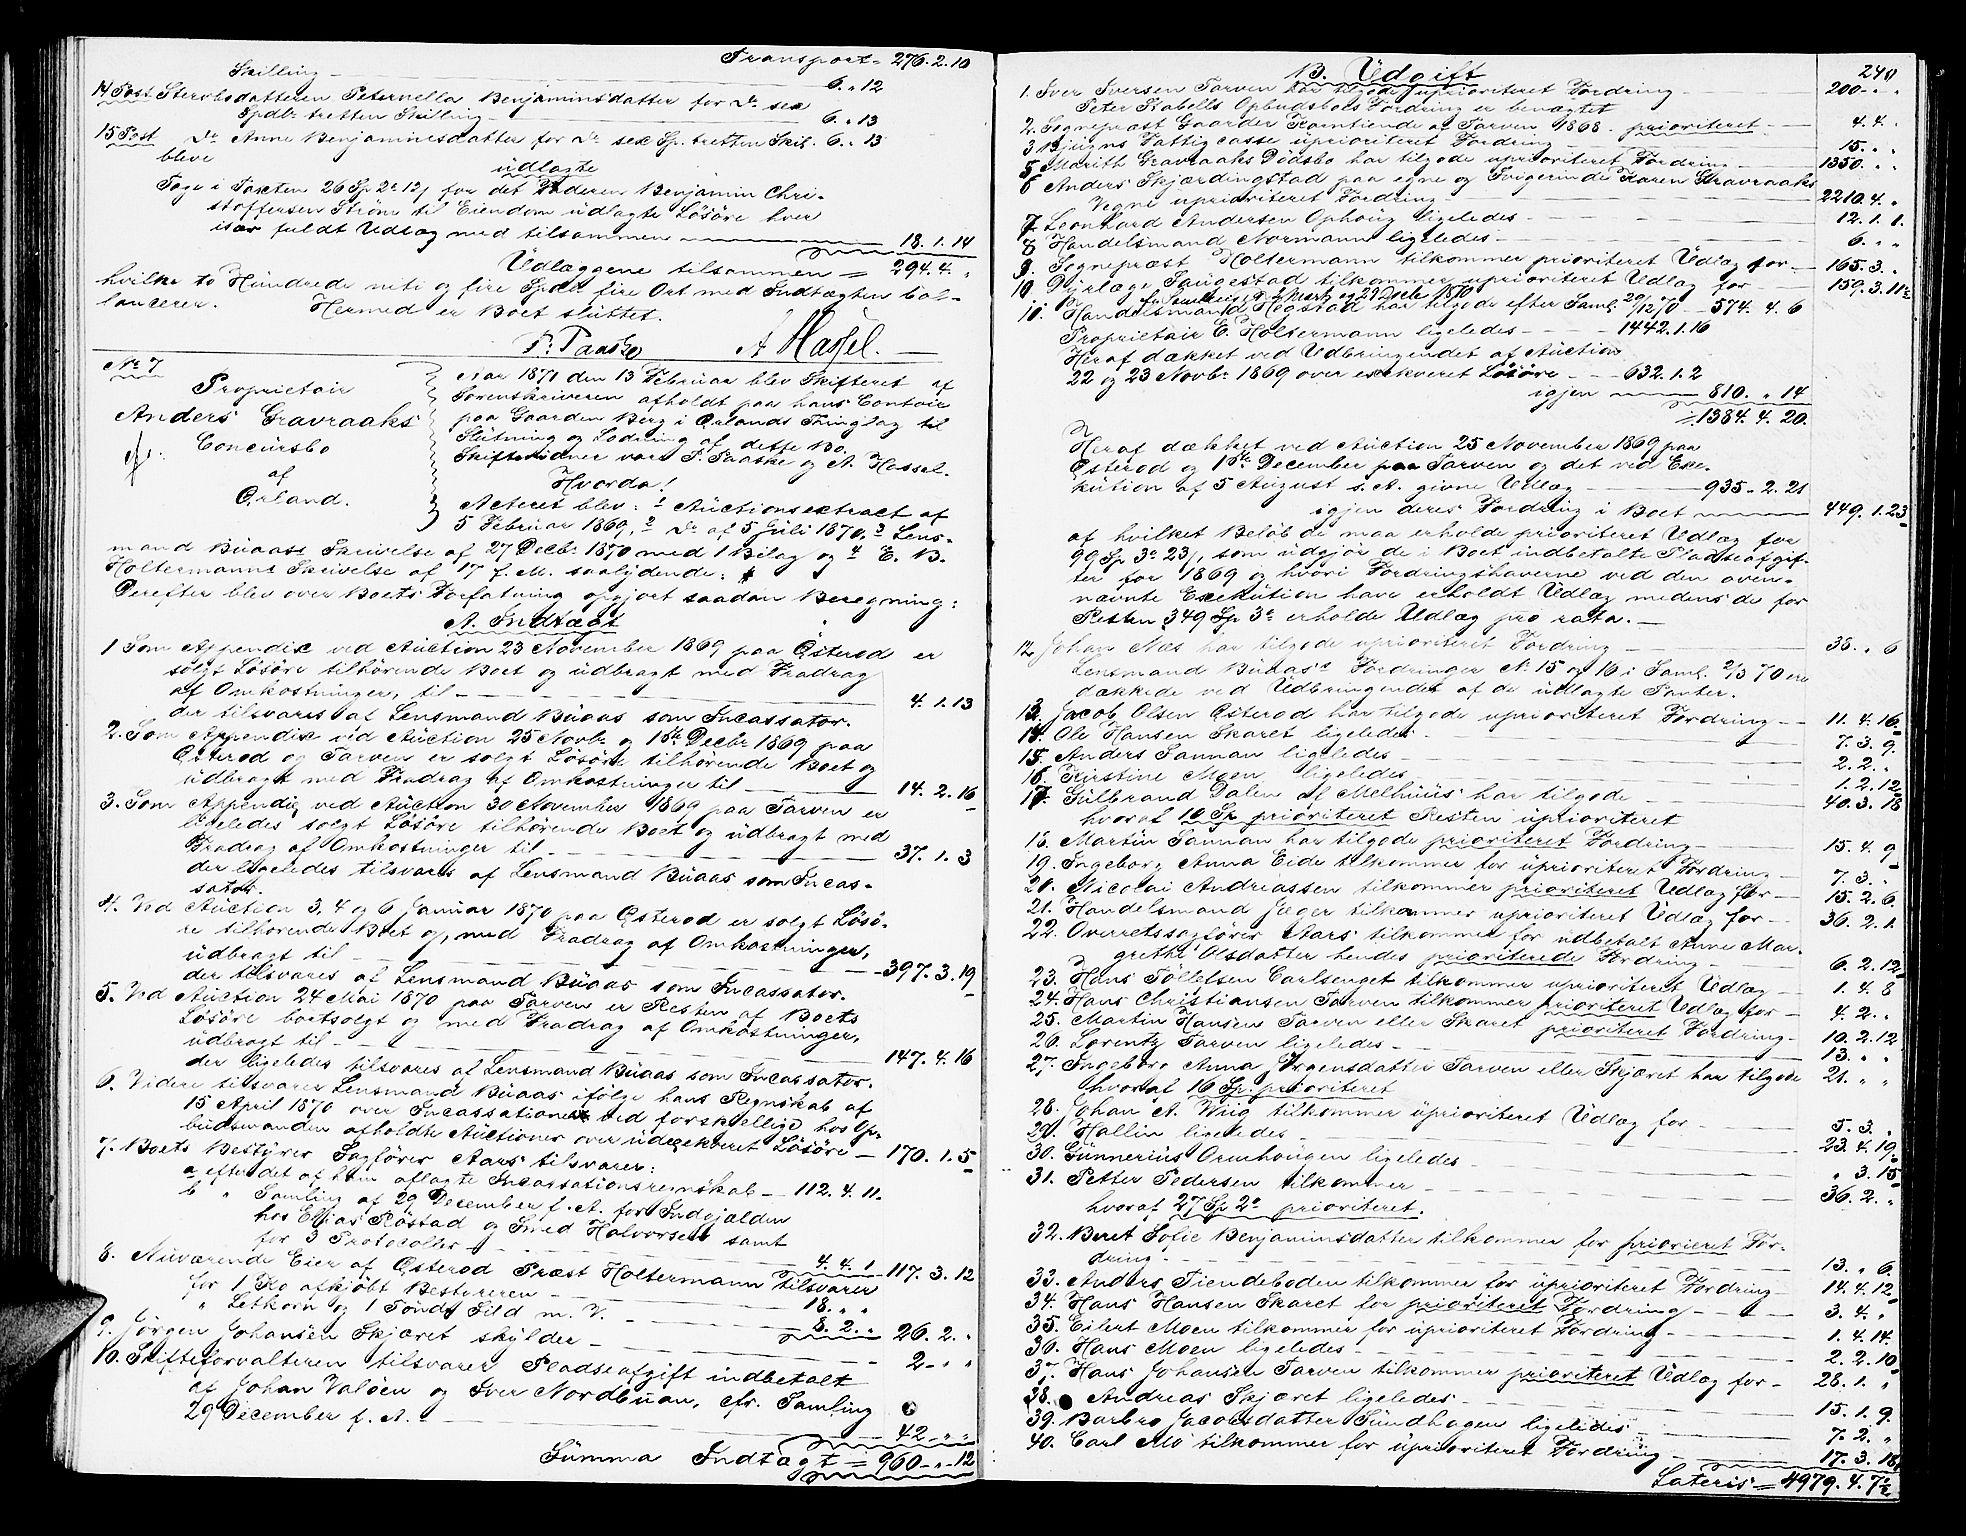 Transport = 276.2.10
Skilling — 6. " 12
14 Post Stervbsdatteren Peternella Benjaminsdatter for Do sex
Spdlr tretten Skilling — 6. " 13
15 Post Do Anne Benjaminsdatter for Do sex Sp. tretten Skil. 6. " 13
bleve udlagte
Tage i Taxten 26 Sp 2 12 for det Faderen Benjamin Chri-
stoffersen Strøm til Eiendom udlagte Løsøre hver
især fuldt Udlæg med tilsammen — 18.1.14
Udlæggene tilsammen = 294.4. "
hvilke to Hundrede niti og fire Spdlr fire Ort med Indtægten bal-
lancerer. Hermed er Boet sluttet.
P. Paaske A Hassel.
No 7
Proprietair
Anders Gravraaks
Concursbo
af
Ørland.
Aar 1871 den 13 Februar blev Skifteret af
Sorenskriveren afholdt paa hans Contoir
paa Gaarden Berg i Ørlands Thinglag til
Slutning og Lodning af dette Bo.
Skiftevidner vare P. Paaske og A. Hassel.
Hvorda!
Acteret blev: 1 Auctionsextract af
5 Februar 1869, 2 Do af 5 Juli 1870, 3 Lens-
mand Buaass Skrivelse af 27 Decbr 1870 med 1 Bilag og 4 E. B.
Holtermanns Skrivelse af 17 f. M. saalydende:
Derefter blev over Boets Forfatning opgjort saadan Beregning:
A. Indtægt
1 Som Appendix ved Auction 23 November 1869 paa Østeraad er
solgt Løsøre tilhørende Boet og udbragt med Fradrag
af Omkostninger, til — 4.1.13
der tilsvares af Lensmand Buaas som Incassator.
2. Som Appendix ved Auction 25 Novbr og 15de Decbr 1869 paa
Østeraad og Tarven er solgt Løsøre tilhørende Boet og
udbragt med Fradrag af Omkostninger til — 14.2.16
3. Som Appendix ved Auction 30 November 1869 paa Tarven er
ligeledes solgt Løsøre tilhørende Boet og udbragt med
Fradrag af Omkostninger til — 37.1.3
der ligeledes tilsvares af Lensmand Buaas som Incas-
sator.
4. Ved Auction 3, 4 og 6 Januar 1870 paa Østeraad er solgt Løsø-
re tilhørende Boet og, med Fradrag af Omkostninger,
udbragt til — 397.3.19
der tilsvares af Lensmand Buaas som Incassator.
5. Ved Auction 24 Mai 1870 paa Tarven er Resten af Boets
Løsøre bortsolgt og med Fradrag af Omkostninger,
udbragt til — 147.4.16
der ligeledes tilsvares af Lensmand Buaas som Incassator.
6. Videre tilsvarer Lensmand Buaas ifølge hans Regnskab af
15 April 1870 over Incassationen ved forskjellige hos Op-
budsmanden afholdte Auctioner over udexekveret Løsøre — 170.1.5
7. Boets Bestyrer Sagfører Aars tilsvarer:
a efter det af ham aflagte Incassationsregnskab — 112.4.11
b " Samling af 29 December f. A. for Indgjælden
hos Elias Røstad og Smed Halvorsen samt
for 3 Protocoller — 4.4.1 117.3.12
8. Nuværende Eier af Østeraad Præst Holtermann tilsvarer
for 1 Ko afkjøbt Bestyreren — 18. " "
" Letkorn og 1 Tønde Sild m. V. — 8.2. " 26.2. "
9. Jørgen Johansen Skjæret skylder — 2. " "
10. Skifteforvalteren tilsvarer Pladseafgift indbetalt
af Johan Valøen og Iver Nordbuan, cfr. Samling
29 December f. A. — 42. " "
Summa Indtægt = 960. " 12
240
B. Udgift
1. Iver Iversen Tarven har tilgode uprioriteret Fordring — 200. " "
Peter Stabells Opbudsbos Fordring er benægtet
2. Sognepræst Gaarder Korntiende af Tarven 1868. prioriteret — 4.4. "
3 Bjugns Fattigcasse uprioriteret Fordring — 15. " "
5 Marith Gravraaks Dødsbo har tilgode uprioriteret Fordring — 1350. " "
6 Anders Skjærdingstad paa egne og Svigerinde Karen Gravraaks
Vegne uprioriteret Fordring — 2210.4. "
7 Leonhard Andersen Ophoug ligeledes — 12.1.1.
8 Handelsmand Normann ligeledes — 6. " "
9. Sognepræst Holtermann tilkommer prioriteret Udlæg for — 165.3. "
10 Dyrlæge Saugestad tilkommer uprioriteret Udlæg for — 159.3.11½
11. Handelsmand Hegstad har tilgode efter Saml. 29/12 70 — 574.4.6
Proprietair E. Holtermann ligeledes — 1442.1.16
Heraf dækket ved Udbringendet af Auction
22 og 23 Novbr 1869 over exekveret Løsøre — 632.1.2
igjen — 810. " 14
1384.4.20.
Heraf dækket ved Auction 25 November 1869 paa
Østeraad og 15de December paa Tarven og det ved Exe-
kution af 5 August s. A. givne Udlæg — 935.2.21
igjen deres Fordring i Boet — 449.1.23
af hvilket Beløb de maa erholde prioriteret Udlæg for
99 Sp 3 23, som udgjør de i Boet indbetalte Pladseafgif-
ter for 1869 og hvori Fordringshaverne ved den oven-
nævnte Exekution have erholdt Udlæg medens de for
Resten 349 Sp 3 erholde Udlæg pro rata. —
12. Johan Næs har tilgode uprioriteret Fordring — 38. " 6
Lensmand Buaas's Fordringer No 15 og 16 i Saml. 2/3 70 ere
dækkede ved Udbringendet af de udlagte Panter.
13. Jacob Olsen Østeraad har tilgode uprioriteret Fordring — 11.4.16
14. Ole Hansen Skaret ligeledes — 7.3.9.
15. Anders Sannan ligeledes — 2.2. "
16. Kirstine Moen ligeledes — 1.2.12
17. Gulbrand Dalen af Melhuus har tilgode — 40.3.18
hvoraf 10 Sp prioriteret Resten uprioriteret
18. Martin Sannan har tilgode prioriteret Fordring — 15.4.9
19. Ingeborg Anna Eide tilkommer for uprioriteret Fordring — 7.3. "
20. Nicolai Andreassen tilkommer prioriteret Udlæg for — 15.2.6.
21. Handelsmand Jæger tilkommer uprioriteret Udlæg for — 36.2.1.
22. Overretssagfører Aars tilkommer for udbetalt Anne Mar-
grethe Olsdatter hendes prioriterede Fordring — 6.2.12
23. Hans Tøllefsen Carlsenget tilkommer uprioriteret Udlæg — 1.4.8
24. Hans Christiansen Tarven tilkommer prioriteret Udlæg for — 4.2. "
25. Martin Hansen Tarven eller Skaret prioriteret Fordring — 10.2.12
26. Lorentz Tarven ligeledes — 13. " "
27. Ingeborg Anna Jørgensdatter Tarven eller Skjæret har tilgode 21. " "
hvoraf 16 Sp. prioriteret
28. Johan A. Wiig tilkommer uprioriteret Udlæg for — 5.3. "
29. Hallin ligeledes — 23.4.19
30. Gunnerius Ormhougen ligeledes — " 3.15
31. Petter Pedersen tilkommer — 36.2. "
hvoraf 27 Sp 2 prioriteret.
32. Beret Sofie Benjaminsdatter tilkommer for priorieret For-
dring — 13. " 6.
33. Anders Tiendeboden tilkommer for uprioriteret Fordring — 14.4.12
34. Hans Hansen Skaret for prioriteret Fordring — 3.4. "
35. Eilert Moen tilkommer for uprioriteret Fordring — 1.4.14.
36. Hans Moen ligeledes — 2.2.10
37. Hans Johansen Tarven tilkommer prioriteret Udlæg for — 28.1. "
38. Andreas Skjæret ligeledes — 15.1.9.
39. Barbro Jacobsdatter Sundhagen ligeledes — 7.2. "
40. Carl Mø tilkommer for uprioriteret Fordring — 17.3.18
Lateris = 4979.4.7½